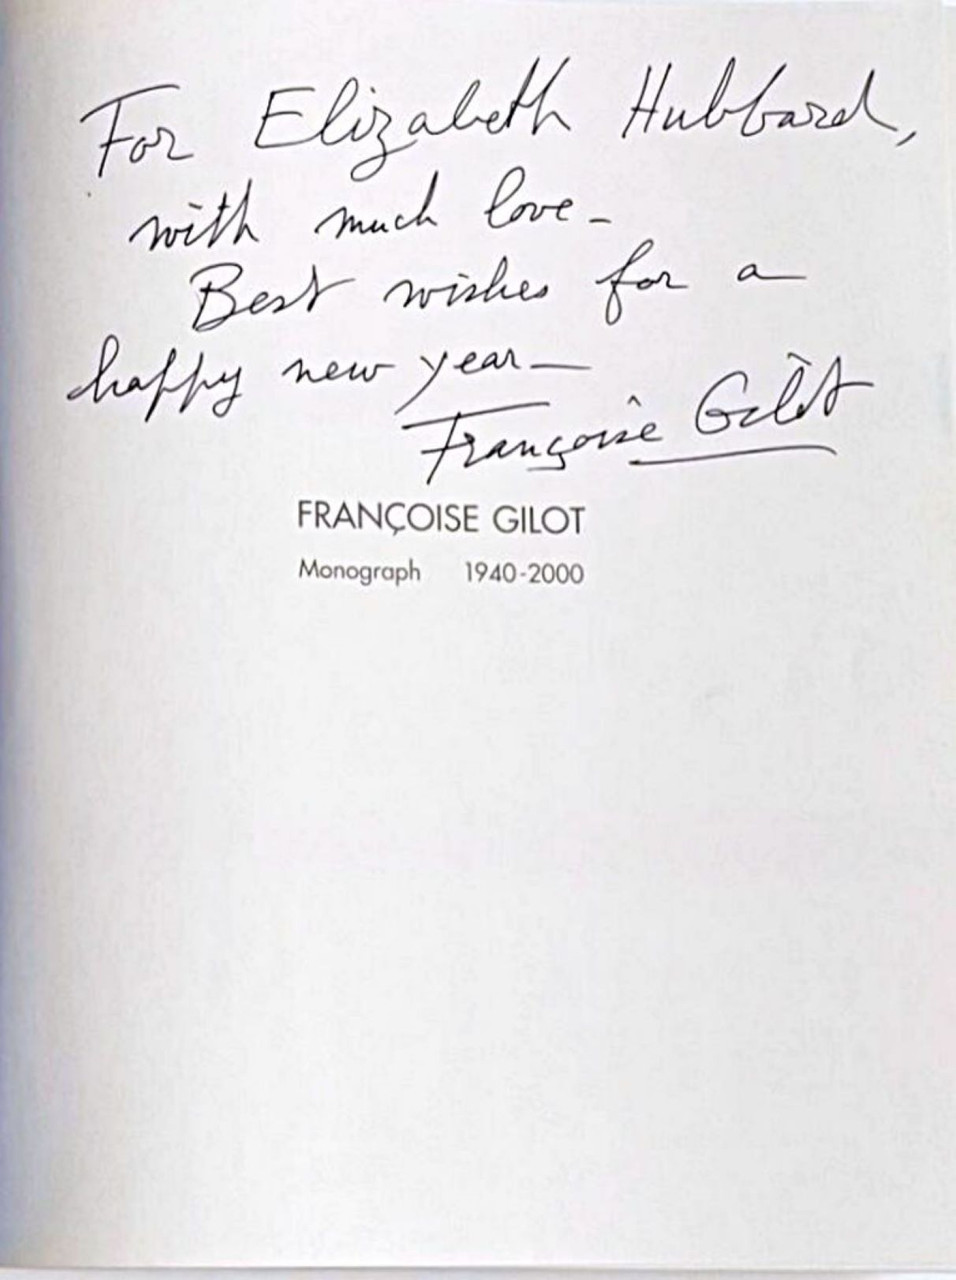 For Elizabeth Hubbard,
with much love-
Best wishes for a
happy new year—
Françoise Gilot
FRANÇOISE GILOT
Monograph 1940-2000